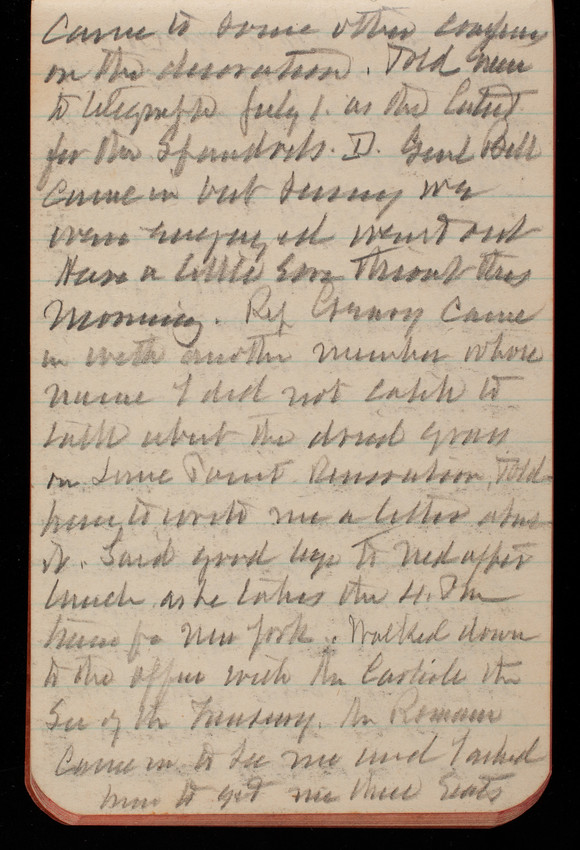 came to some other
on the decoration. Told him
to telegraph July 1. as the latest
for the Spandrels. Genl Bell
came in but seeing we
were engaged went out
Have a little sore throat this
morning. Rep Geary came
in with another member whose
name I did not catch to
talk about the dried grass
on Lime Point Reservation, Told
him to write me a letter about
it. Said good bye to Ned after
lunch as he takes the 4. Pm
train for New York. Walked down
to the office with Mr Carlisle the
Sec of the Treasury. Mr Romain
came in to see me and I asked
him to get me three seats